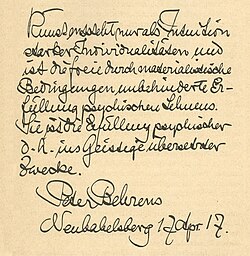 Kunst entsteht nur als Intuition
starker Individualitäten und
ist die freie durch materialistische
Bedingungen unbehinderte Er-
füllung psychischen Sehnens.
Sie ist die Erfüllung psychischer
d. h. ins Geistige übersetzter
Zwecke.
Peter Behrens
Neubabelsberg 17 Apr 17.